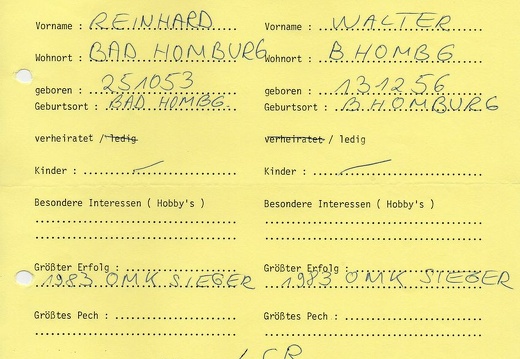 Vorname : REINHARD Vorname : WALTER
Wohnort : BAD HOMBURG Wohnort : B.HOMBG
geboren : 251053 geboren : 131256
Geburtsort : BAD HOMBG. Geburtsort : B.HOMBURG
verheiratet / ledig verheiratet / ledig
Kinder : Kinder :
Besondere Interessen ( Hobby's ) Besondere Interessen ( Hobby's )
Größter Erfolg : Größter Erfolg :
1983 OMK SIEGER 1983 OMK SIEGER
Größtes Pech : Größtes Pech :